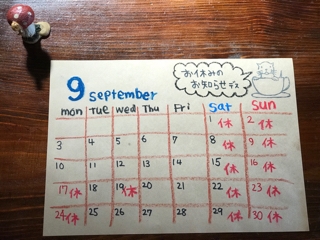 お休みの
お知らせデス
9 September
mon Tue Wed Thu Fri Sat Sun
1 休 2 休
3 4 5 6 7 8 休 9 休
10 11 12 13 14 15 休 16 休
17 休 18 19 休 20 21 22 休 23 休
24 休 25 26 27 28 29 休 30 休